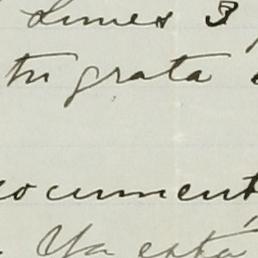 Lunes 3
tu grata
ocument
Ya esta